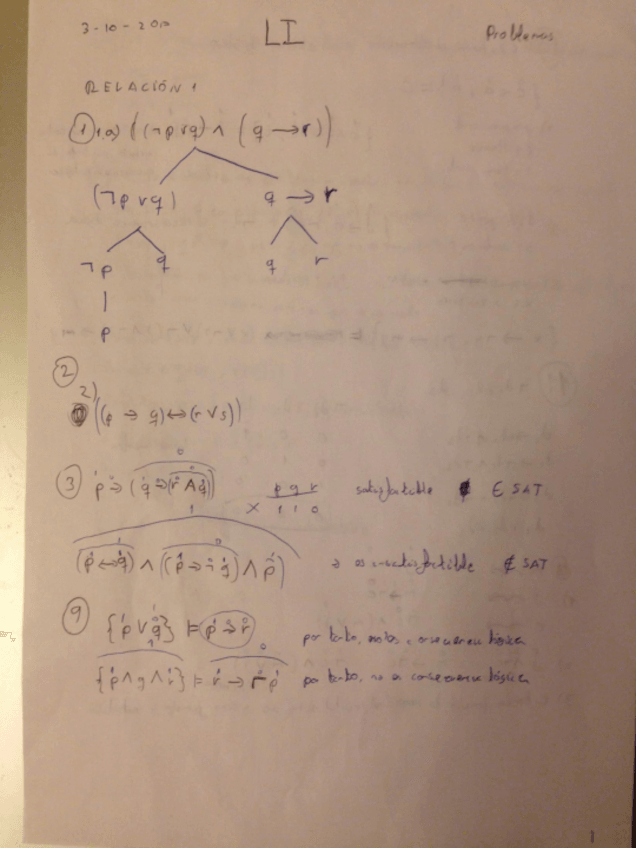 3-10-2010 LI Problemas
RELACIÓN 1
1 1.a) ((¬p∨q) ∧ (q → r))
(¬p∨q) q → r
¬p q q r
p
2
2)
((p → q) ↔ (r ∨ s))
3 p → (q → (r ∧ q)) p q r satisfactible ∈ SAT
0
1
× 1 1 0
(p ↔ q) ∧ ((p → ¬q) ∧ p) → es insatisfactible ∉ SAT
9 {p ∨ q} ⊨ p → r por tanto, no es consecuencia lógica
{p ∧ q ∧ r} ⊨ r → p por tanto, no es consecuencia lógica
1